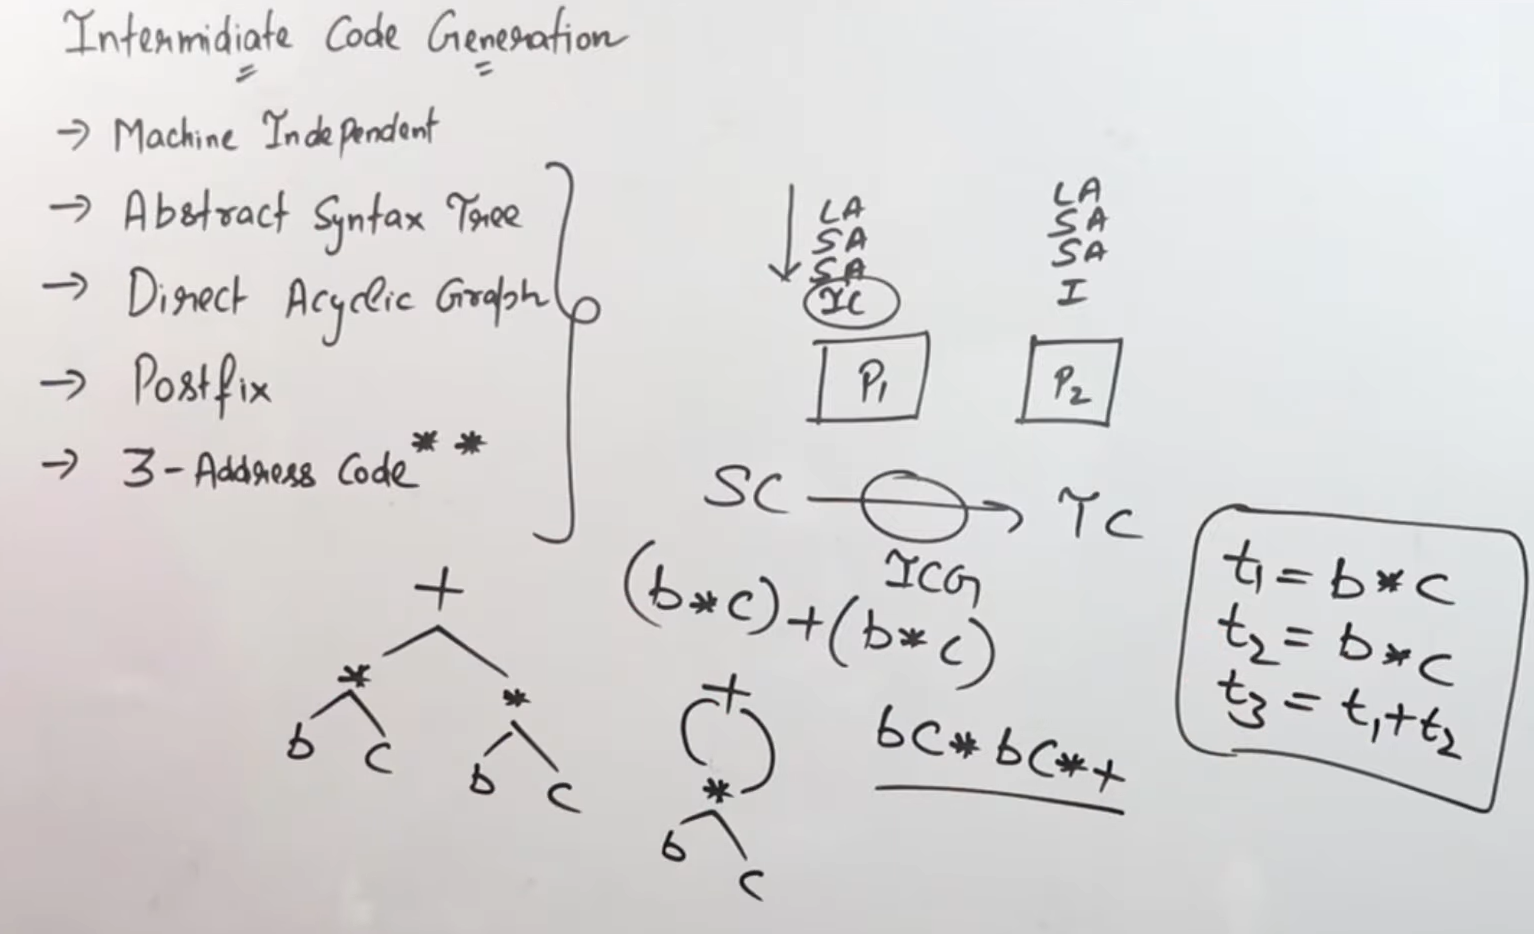 Intermidiate Code Generation
→ Machine Independent
→ Abstract Syntax Tree
→ Direct Acyclic Graph
→ Postfix
→ 3-Address Code**
LA
SA
SA
IC
P1
LA
SA
SA
I
P2
SC → TC
ICG
(b*c)+(b*c)
+
* *
b c b c
+
*
b c
bc*bc*+
t1 = b*c
t2 = b*c
t3 = t1+t2